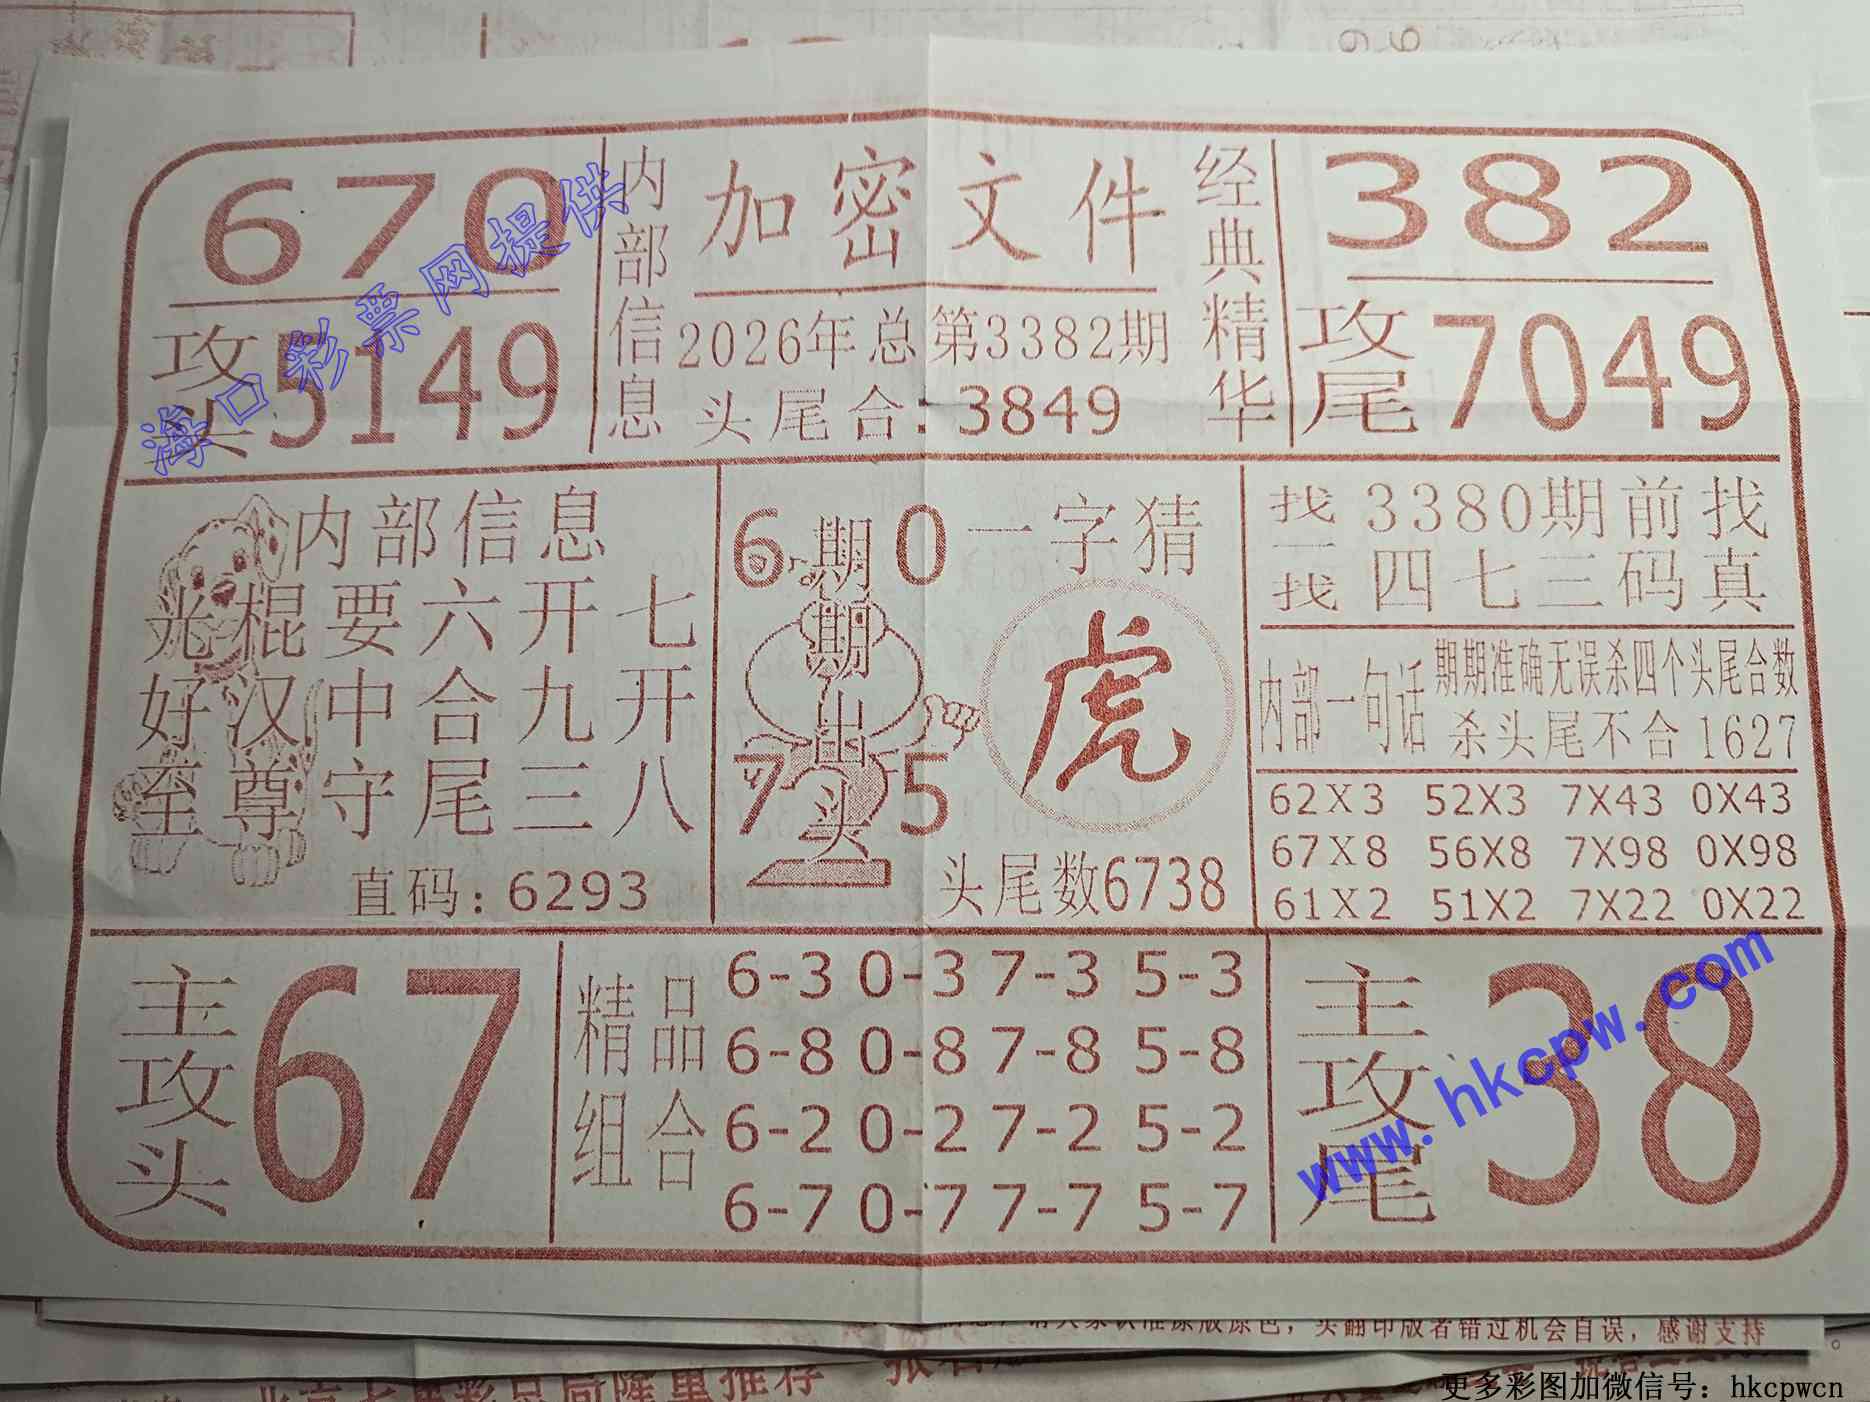 670
攻头 5149
内部信息
加密文件
2026年总第3382期
头尾合:3849
经典精华
382
攻尾 7049
内部信息
光棍要六开七
好汉中合九开
至尊守尾三八
直码:6293
6 0
7 5
期期出头
一字猜
虎
头尾数6738
找一找
3380期前找
四七三码真
内部一句话
期期准确无误杀四个头尾合数
杀头尾不合1627
62X3 52X3 7X43 0X43
67X8 56X8 7X98 0X98
61X2 51X2 7X22 0X22
主攻头 67
精品组合
6-3 0-3 7-3 5-3
6-8 0-8 7-8 5-8
6-2 0-2 7-2 5-2
6-7 0-7 7-7 5-7
主攻尾 38
海口彩票网提供
www.hkcpw.com
买翻印版者错过机会自误，感谢支持。
更多彩图加微信号：hkcpwcn